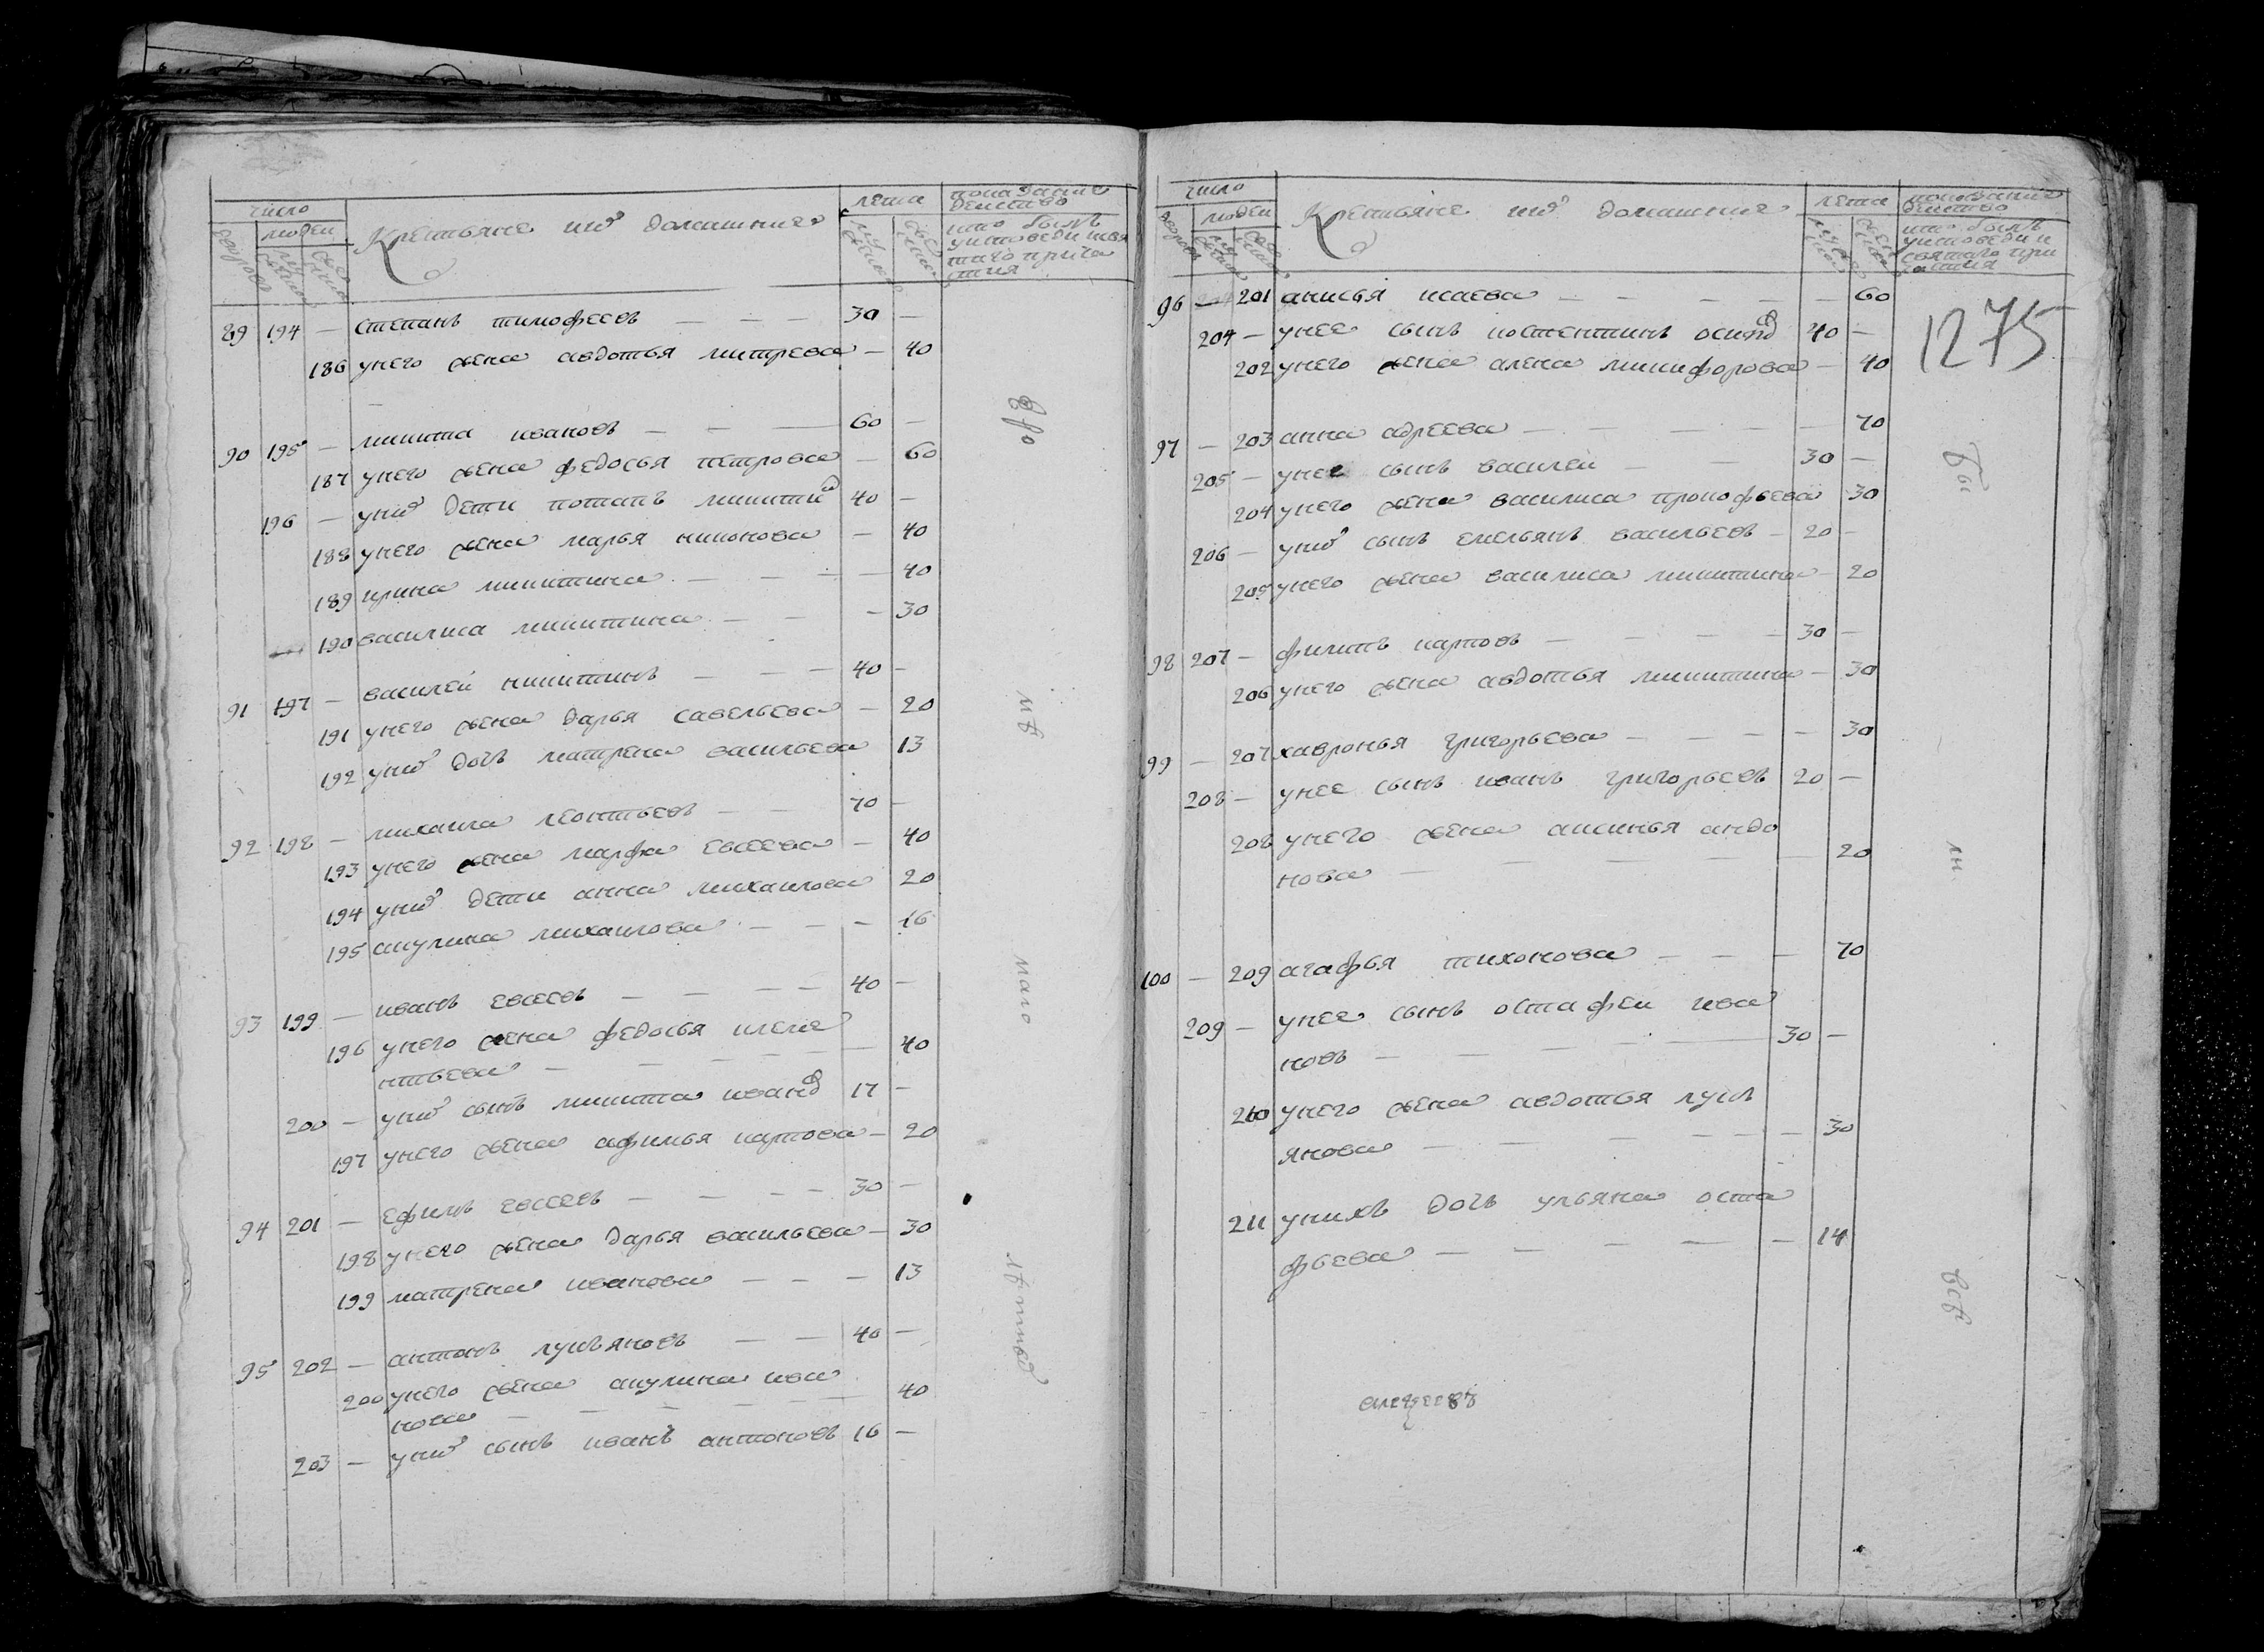 число
людей
Крестьяне ихъ домашние
лета
показание действо
кто былъ
у исповеди и свя
таго прича
стия
89 194 — степанъ тимофеевъ — — — 30 —
186 унего жена авдотья митрева — 40
90 195 — микита ивановъ — — — 60 —
187 унего жена федосья петрова — 60
196 — унихъ дети потапъ микитин 40 —
188 унего жена марья никонова — 40
189 ирина микитина — — — 40
190 василиса микитина — — — 30
91 197 — василей никитинъ — — — 40 —
191 унего жена дарья савельева — 20
192 унихъ дочь матрена васильева 13
92 198 — михаила леонтьевъ — — 70 —
193 унего жена марфа евсеева — 40
194 унихъ дети анна михаилова 20
195 акулина михаилова — — — 16
93 199 — иванъ евсеевъ — — — — 40 —
196 унего жена федосья клеме
нтьева — — — — — 40
200 — унихъ сынъ микита иванов 17 —
197 унего жена афимья карпова — 20
94 201 — ефимъ евсеевъ — — — — 30 —
198 унего жена дарья васильева — 30
199 матрена иванова — — — 13
95 202 — антонъ лукьяновъ — — 40 —
200 унего жена акулина ива
нова — — — — — 40
203 — унихъ сынъ иванъ антоновъ 16 —
число
людей
Крестьяне ихъ домашние
лета
показание
действо
кто былъ
у исповеди и
святаго при
частия
1275
96 — 201 анисья исаева — — — — — 60
204 — унее сынъ костентинъ осипов 40 —
202 унего жена алена микифорова — 40
97 — 203 анна адреева — — — — — 70
205 — унее сынъ василей — — 30 —
204 унего жена василиса прокофьева 30
206 — унихъ сынъ емельянъ васильевъ — 20 —
205 унего жена василиса микитина — 20
98 207 — филипъ карповъ — — — — 30 —
206 унего жена авдотья микитина — 30
99 — 207 хавронья григорьева — — — — 30
208 — унее сынъ иванъ григорьевъ 20 —
208 унего жена аксинья андо
нова — — — — — 20
100 — 209 агафья тихонова — — — 70
209 — унее сынъ остафеи ива
новъ — — — — — 30 —
210 унего жена авдотья лукь
янова — — — — — — 30
211 унихъ дочь ульяна оста
фьева — — — — — 14